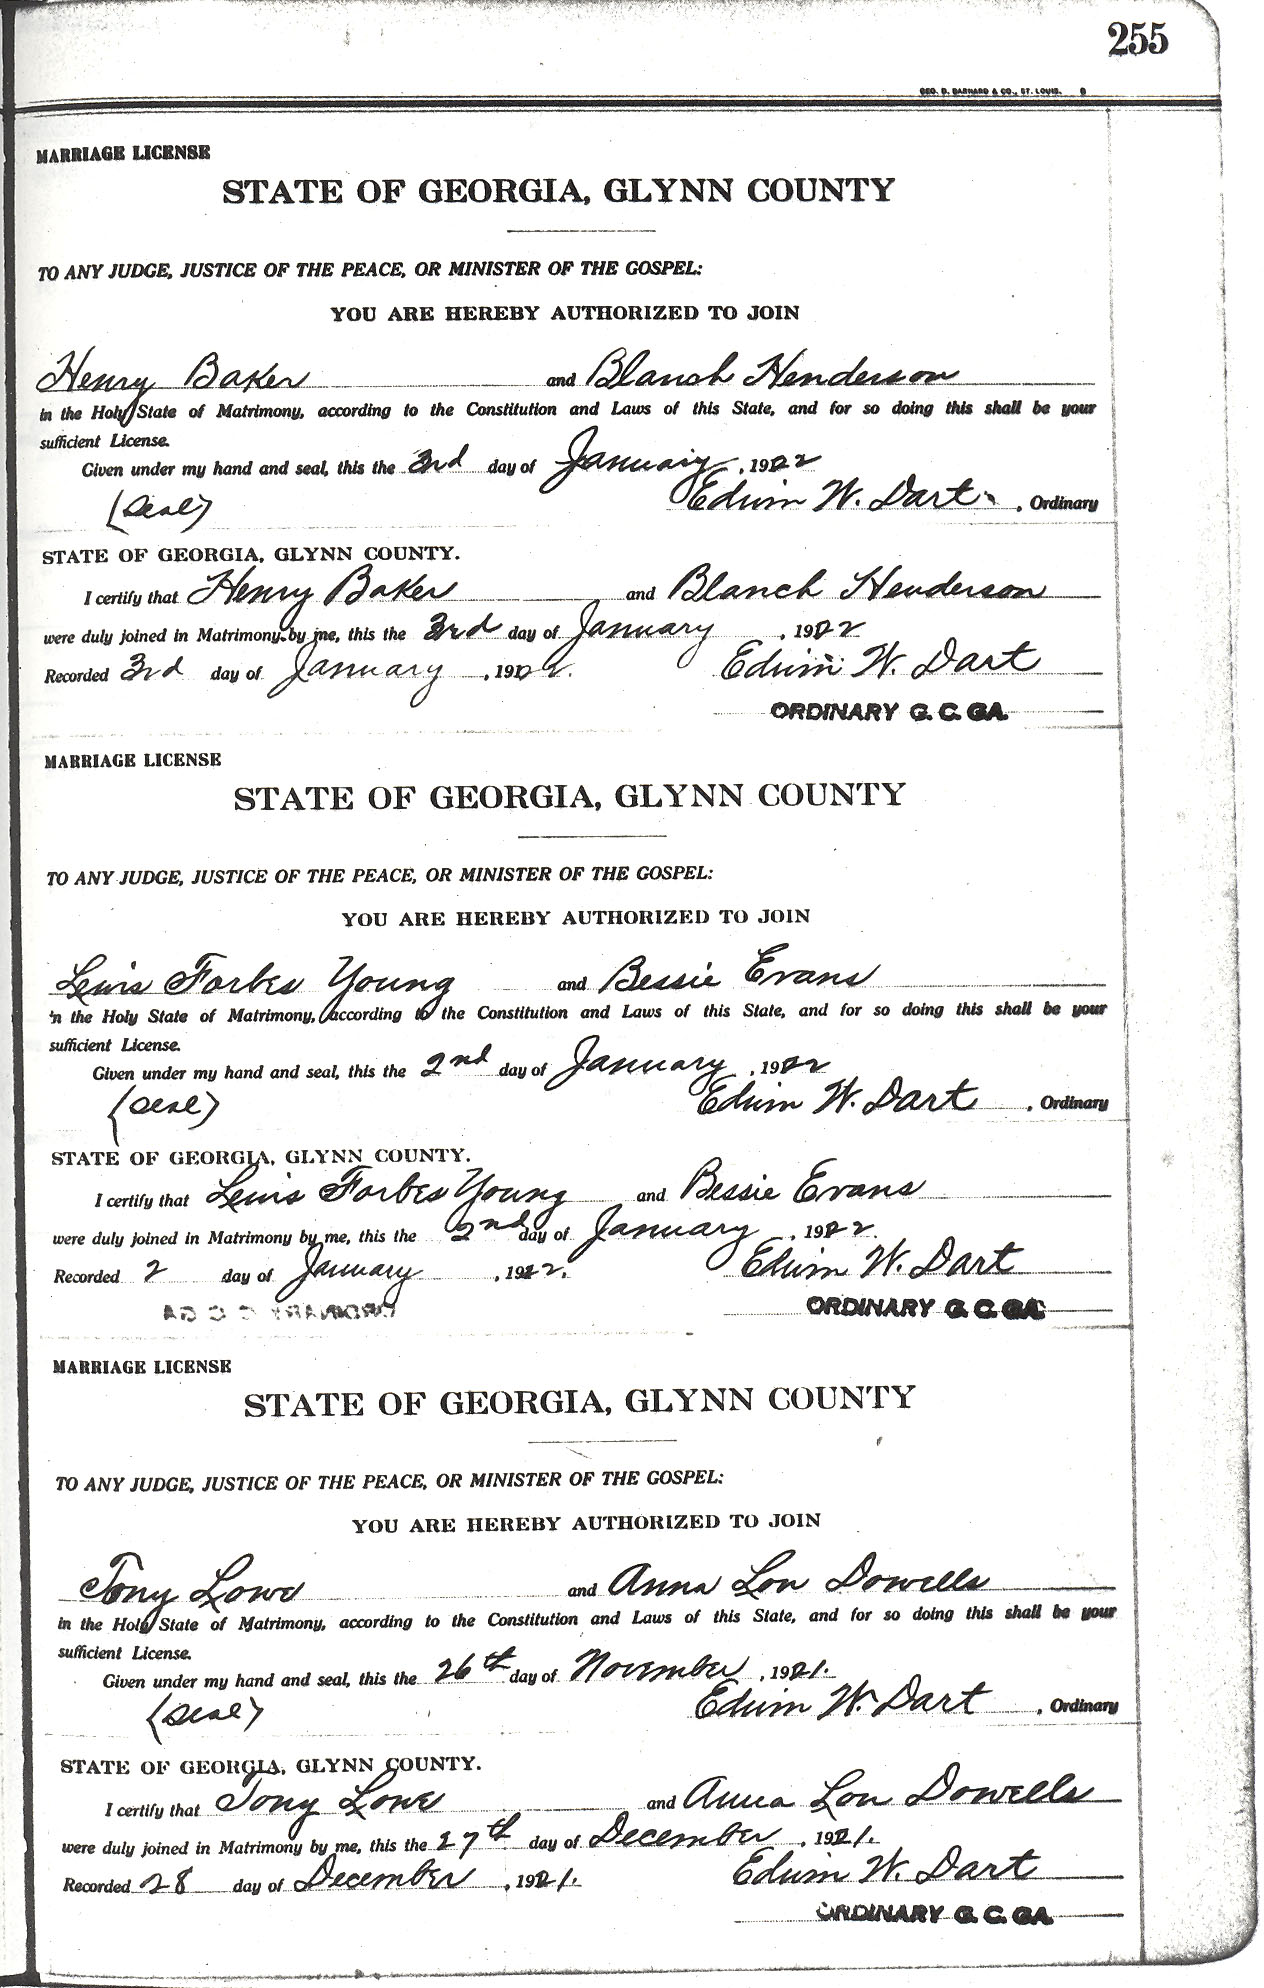 255
GEO. D. BARNARD & CO., ST. LOUIS.
MARRIAGE LICENSE
STATE OF GEORGIA, GLYNN COUNTY
TO ANY JUDGE, JUSTICE OF THE PEACE, OR MINISTER OF THE GOSPEL:
YOU ARE HEREBY AUTHORIZED TO JOIN
Henry Baker and Blanch Henderson
in the Holy State of Matrimony, according to the Constitution and Laws of this State, and for so doing this shall be your
sufficient License.
Given under my hand and seal, this the 3rd day of January, 1922
(Seal) Edwin W. Dart, Ordinary
STATE OF GEORGIA, GLYNN COUNTY.
I certify that Henry Baker and Blanch Henderson
were duly joined in Matrimony by me, this the 3rd day of January, 1922
Recorded 3rd day of January, 1922. Edwin W. Dart
ORDINARY G. C. GA.
MARRIAGE LICENSE
STATE OF GEORGIA, GLYNN COUNTY
TO ANY JUDGE, JUSTICE OF THE PEACE, OR MINISTER OF THE GOSPEL:
YOU ARE HEREBY AUTHORIZED TO JOIN
Lewis Forbes Young and Bessie Evans
in the Holy State of Matrimony, according to the Constitution and Laws of this State, and for so doing this shall be your
sufficient License.
Given under my hand and seal, this the 2nd day of January, 1922
(Seal) Edwin W. Dart, Ordinary
STATE OF GEORGIA, GLYNN COUNTY.
I certify that Lewis Forbes Young and Bessie Evans
were duly joined in Matrimony by me, this the 2nd day of January, 1922.
Recorded 2 day of January, 1922. Edwin W. Dart
ORDINARY G. C. GA.
MARRIAGE LICENSE
STATE OF GEORGIA, GLYNN COUNTY
TO ANY JUDGE, JUSTICE OF THE PEACE, OR MINISTER OF THE GOSPEL:
YOU ARE HEREBY AUTHORIZED TO JOIN
Tony Lowe and Anna Lou Dowells
in the Holy State of Matrimony, according to the Constitution and Laws of this State, and for so doing this shall be your
sufficient License.
Given under my hand and seal, this the 26th day of November, 1921.
(Seal) Edwin W. Dart, Ordinary
STATE OF GEORGIA, GLYNN COUNTY.
I certify that Tony Lowe and Anna Lou Dowells
were duly joined in Matrimony by me, this the 27th day of December, 1921.
Recorded 28 day of December, 1921. Edwin W. Dart
ORDINARY G. C. GA.